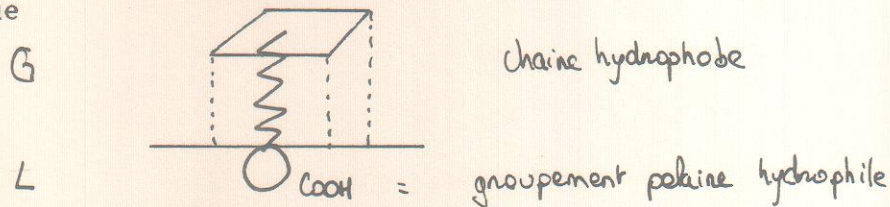 ue
G chaine hydrophobe
L COOH = groupement polaire hydrophile